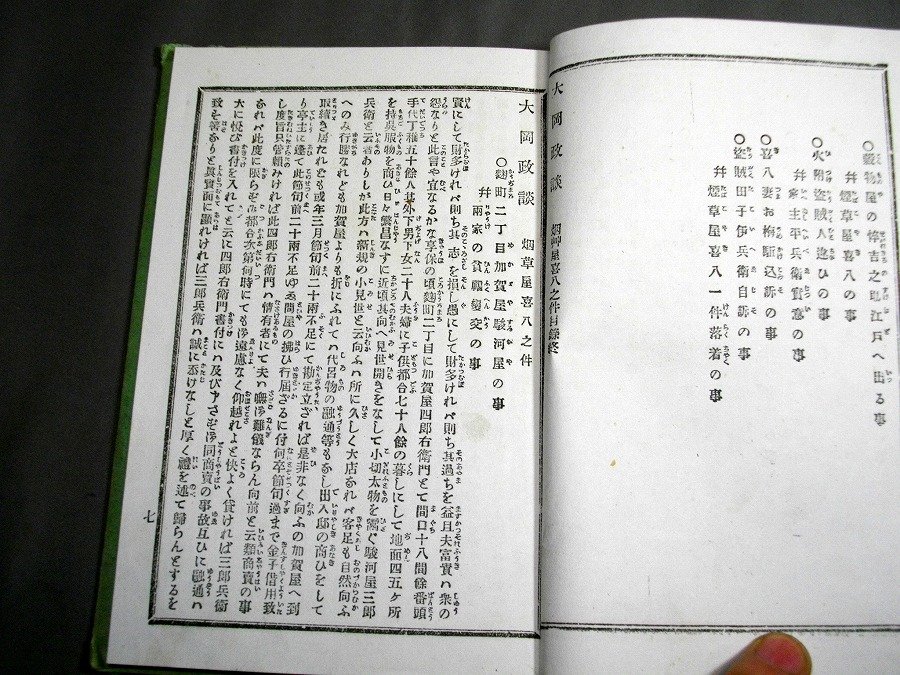 ○穀物屋の悴吉之助江戸へ出る事
幷煙草屋喜八の事
○火附盗賊人違ひの事
幷家主平兵衛實意の事
○喜八妻お梅駈込訴の事
○盗賊田子伊兵衛自訴の事
幷煙草屋喜八一件落着の事
大岡政談 烟艸屋喜八之件目録終
大岡政談 烟草屋喜八之件
○麹町二丁目加賀屋駿河屋の事
幷兩家の貧福變交の事
賢にして財多ければ則ち其志を損し愚にして財多ければ則ち其過ちを益且夫富貴ハ衆の
怨なりと此言や宜なるかな享保の頃麹町二丁目に加賀屋四郎右衛門とて間口十八間餘番頭
手代丁稚五十餘人其外下男下女二十八夫婦に子供都合七十八餘の暮しにして地面四五ヶ所
を持呉服物を商ひ日々繁昌なすに近頃其向へ見世開きをなして小切太物を商ぐ駿河屋三郎
兵衛と云者ありしが此方ハ新規の小見世と云向ふハ所に久しく大店なれバ客足も自然向ふ
へのみ行勝なれども加賀屋よりも折にふれてハ代呂物の融通等もなし出入邸の商ひをして
取續き居たれども或年三月節句前二十兩不足にて勘定立ざれば是非なく向ふの加賀屋へ到
り亭主に逢て此節句前二十兩不足ゆゑ問屋の拂ひ行屆ざるに付何卒節句過まで金子借用致
し度旨只管頼みければ此四郎右衛門ハ情有者にて夫ハ嘸御難儀ならん向前と云類商賣の事
なれバ此度に限らず都合次第何時にても御遠慮なく仰越れよと快よく貸ければ三郎兵衛
大に悦び書付を入れてと云に四郎右衛門書付にハ及びアさぬ御同商賣の事故互ひに融通ハ
致す筈なりと眞實面に顯れければ三郎兵衛ハ誠に忝けなしと厚く禮を述て歸らんとするを
七